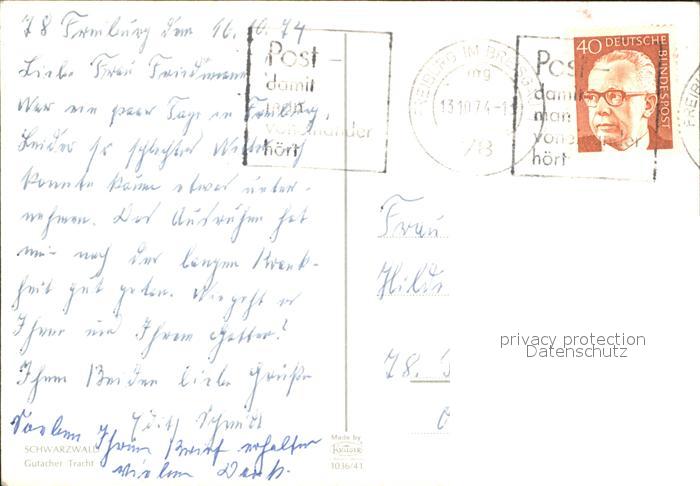 78 Freiburg den 16.10.74
Liebe Frau Friedmann
War ein paar Tage in Freiburg.
Leider so schlechtes Wetter,
konnte kaum etwas unter-
nehmen. Das Ausruhen hat
mir nach der langen Krank-
heit gut getan. Wie geht es
Ihnen und Ihrem Gatten?
Ihnen Beiden liebe Grüße
Edith Schmidt
Soeben Ihren Brief erhalten
vielen Dank.
SCHWARZWALD
Gutacher Tracht
Made by
KRÜGER
1036/41
Post -
damit
man
voneinander
hört
FREIBURG IM BREISG
mg
13.10.74-1
78
Post -
damit
man
voneinander
hört
40 DEUTSCHE
BUNDESPOST
FREIB
Frau
Hilde
78.
privacy protection
Datenschutz